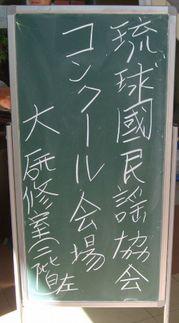 琉球國民謡協会
コンクール会場
大研修室(三階左